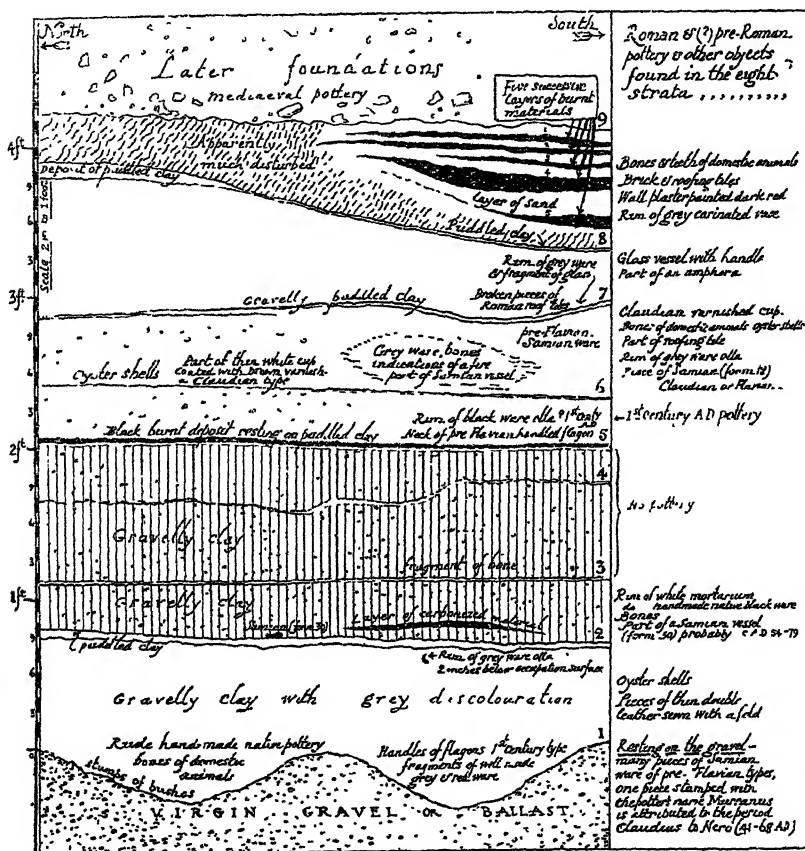 North
South
Later foundations
mediaeval pottery
Five successive
layers of burnt
materials
9
4ft
Apparently
much disturbed
Deposit of puddled clay
layer of sand
Puddled clay
8
Scale 2 in to 1 foot
Rim of grey ware
& fragment of glass
Broken pieces of
Roman roof tiles
7
3ft
Gravelly puddled clay
pre-Flavian
Samian ware
Grey ware, bones
indications of a fire
part of Samian vessel
Oyster shells
Part of thin white cup
coated with brown varnish
a Claudian type
6
Rim of black ware olla ? 1st Cnty
AD
Neck of pre Flavian handled flagon
5
Black burnt deposit resting on puddled clay
2ft
4
Gravelly clay
fragment of bone
3
1ft
Gravelly clay
Layer of carbonized material
Samian (form 30)
2
puddled clay
Rim of grey ware olla
2 inches below occupation surface
Gravelly clay with grey discolouration
1
Rude hand made native pottery
bones of domestic
animals
Handles of flagons 1st century type
fragments of well made
grey & red ware
stumps of bushes
VIRGIN GRAVEL OR BALLAST
Roman & (?) pre-Roman
pottery & other objects
found in the eight
strata ..........
Bones & teeth of domestic animals
Brick & roofing tiles
Wall plaster painted dark red
Rim of grey carinated vase
Glass vessel with handle
Part of an amphora
Claudian varnished cup.
Bones of domestic animals oyster shells
Part of roofing tile
Rim of grey ware olla
Piece of Samian (form 18)
Claudian or Flavian..
1st century AD pottery
No pottery
Rim of white mortarium
do handmade native black ware
Bones
Part of a Samian vessel
(form 30) probably AD 54-79
Oyster shells
Pieces of thin double
leather sewn with a fold
Resting on the gravel-
many pieces of Samian
ware of pre-Flavian types,
one piece stamped with
the potter's name Murranus
is attributed to the period
Claudius to Nero (41-68 AD)